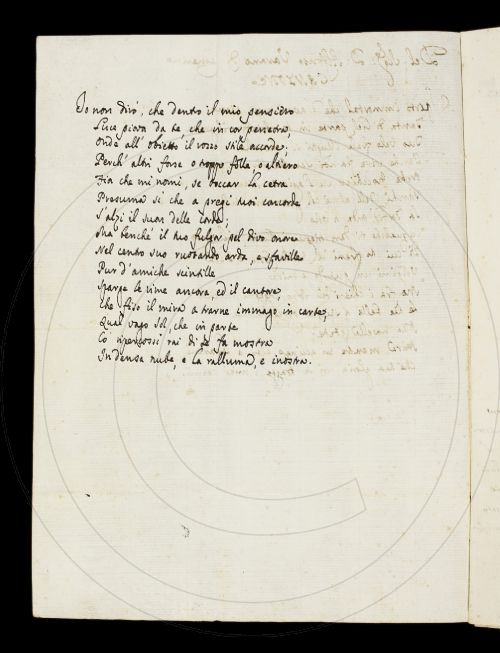 Io non dirò, che dentro il mio pensiero
Luce piova da te, che in cor penetra,
Onde all' obietto il rozzo stile accorde;
Perch' altri forse o troppo folle, o altiero
Fia che mi nomi, se toccar la cetra
Presuma sì che a pregi tuoi concorde
S'alzi il suon delle corde;
Ma benchè il tuo fulgor pel divo onore
Nel centro suo ruotando arda, e sfaville
Pur d'amiche scintille
Sparge le rime ancora, ed il cantore,
Che fiso il mira a trarne immago in carte,
Qual vago Sol, che in parte
Co' ripercossi rai di se fa mostra
In densa nube, e la ralluma, e inostra.